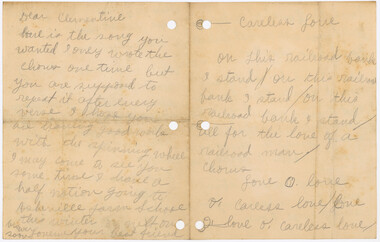 Dear Clementine
here is the song you
wanted I only wrote the
chorus one time but
you are suppose to
repeat it after every
verse I hope you
are having good
with the spinning wheel
I may come to see you
some time I have a
half notion going to
this
your best friend
Careless Love
on this railroad bank
I stand / on this railroad
bank I stand / on this
railroad bank I stand /
all for the love of a
railroad man /
chorus
Love O. love
O. careless love / love
O love O. careless love /